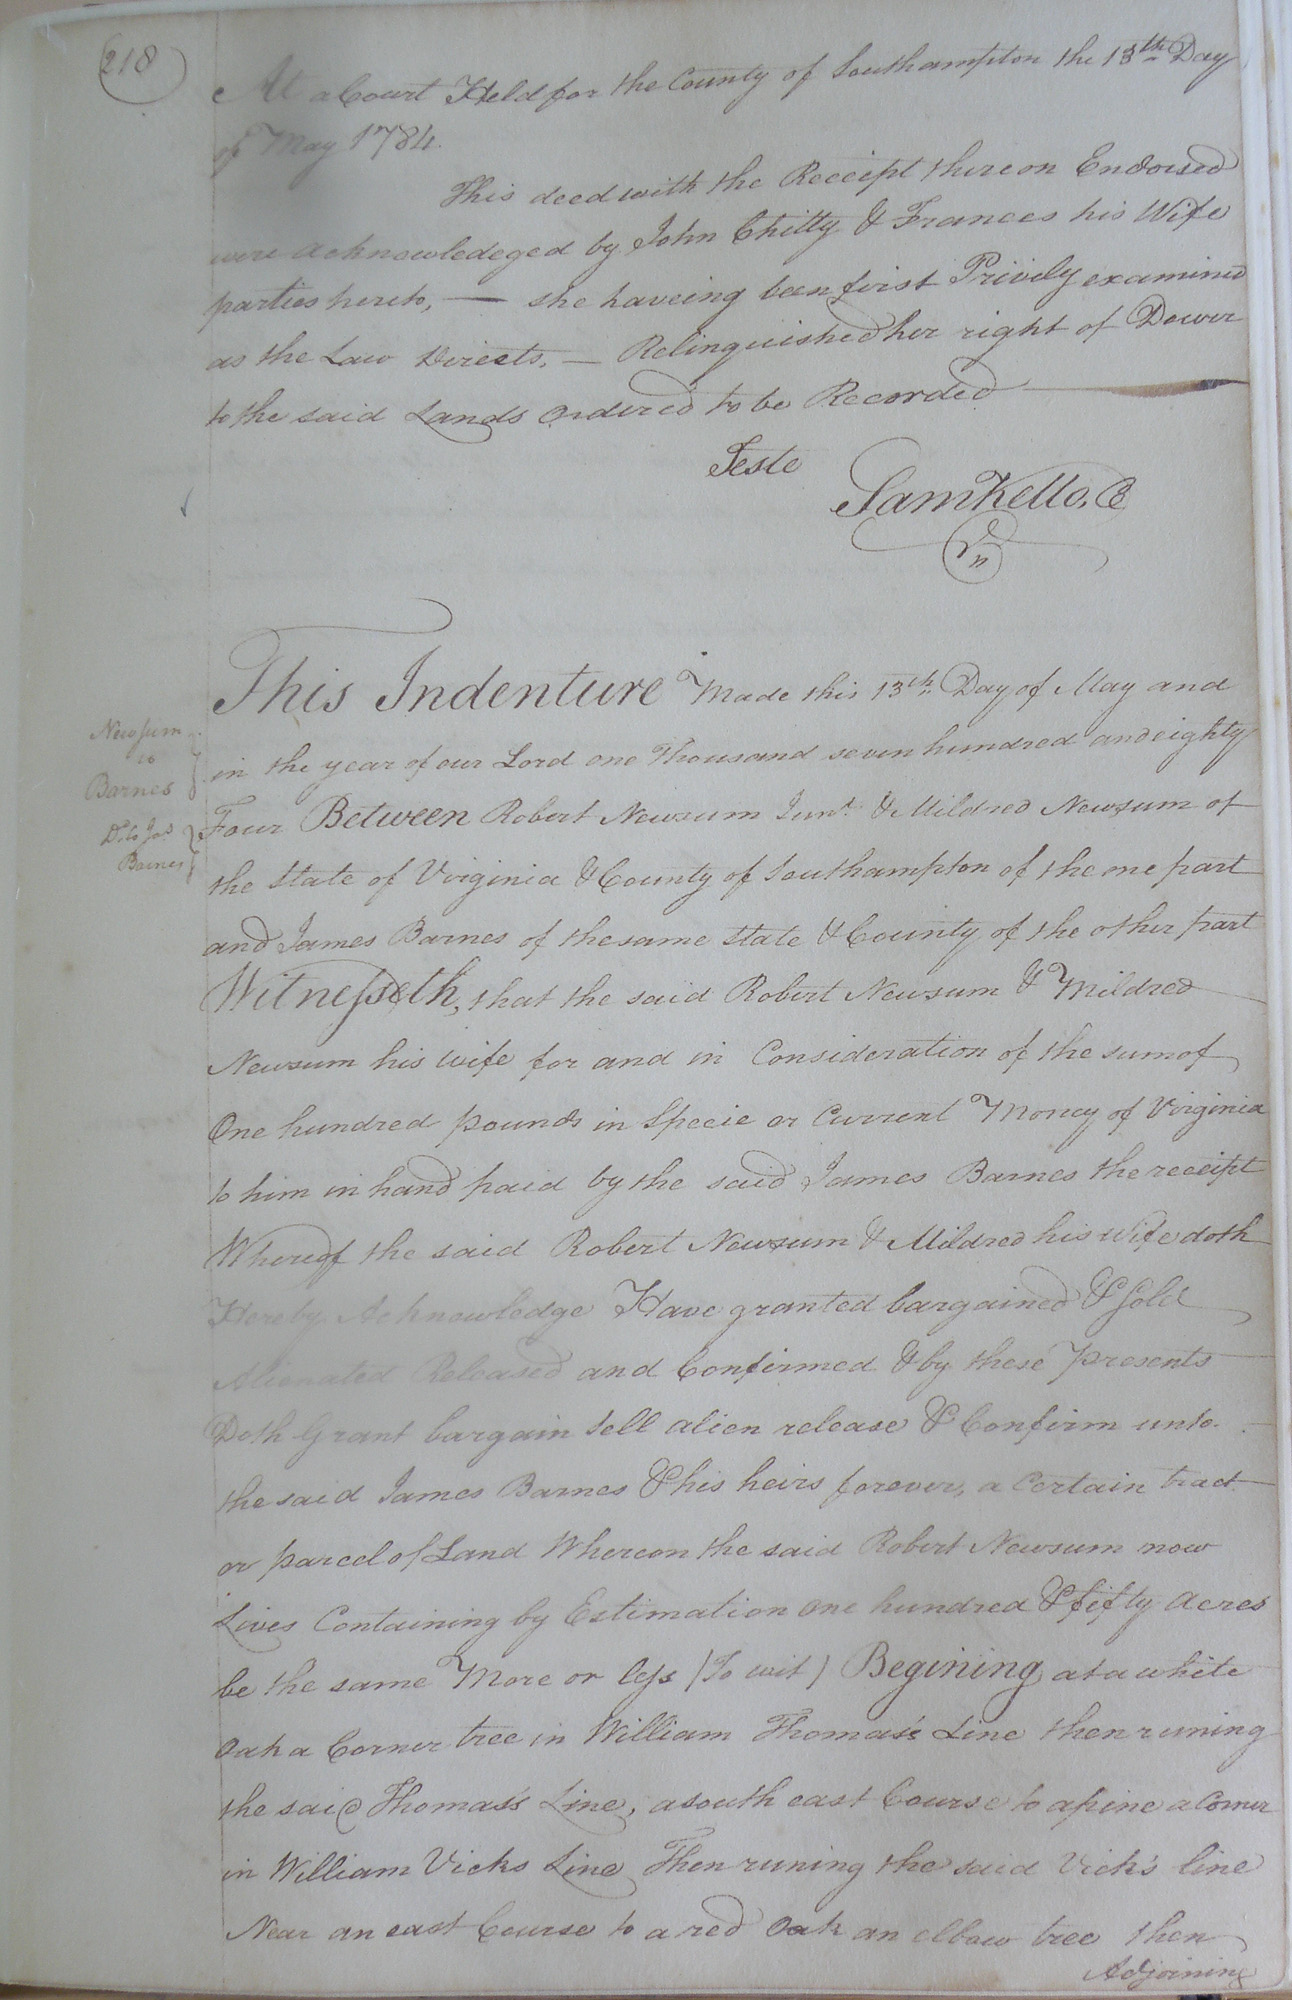 218
At a Court Held for the County of Southampton the 13th Day
of May 1784.
This deed with the Receipt thereon Endorsed
were acknowledeged by John Chitty & Frances his Wife
parties hereto, — she haveing been first Privily examined
as the Law Directs. — Relinquished her right of Dower
to the said Lands Ordered to be Recorded
Teste
Sam Kello, C
This Indenture Made this 13th Day of May and
in the year of our Lord one Thousand seven hundred and eighty
Four Between Robert Newsum Junr. & Mildred Newsum of
the State of Virginia & County of Southampton of the one part
and James Barnes of the same State & County of the other part
Witnesseth, that the said Robert Newsum & Mildred
Newsum his wife for and in Consideration of the sum of
One hundred pounds in Specie or Current Money of Virginia
to him in hand paid by the said James Barnes the receipt
Whereof the said Robert Newsum & Mildred his Wife doth
Hereby Acknowledge Have granted bargained & Sold
Alienated Released and Confirmed & by these presents
Doth Grant bargain Sell alien release & Confirm unto
the said James Barnes & his heirs forever, a Certain tract
or parcel of Land Whereon the said Robert Newsum now
Lives Containing by Estimation One hundred & fifty Acres
be the same More or less (To wit) Begining at a white
Oak a Corner tree in William Thomas's Line then runing
the said Thomas's Line, a south east Course to a pine a Corner
in William Vicks Line Then runing the said Vick's line
Near an east Course to a red Oak an elbow tree then
Adjoining
Newsum
to
Barnes
Do. to Jas.
Barnes